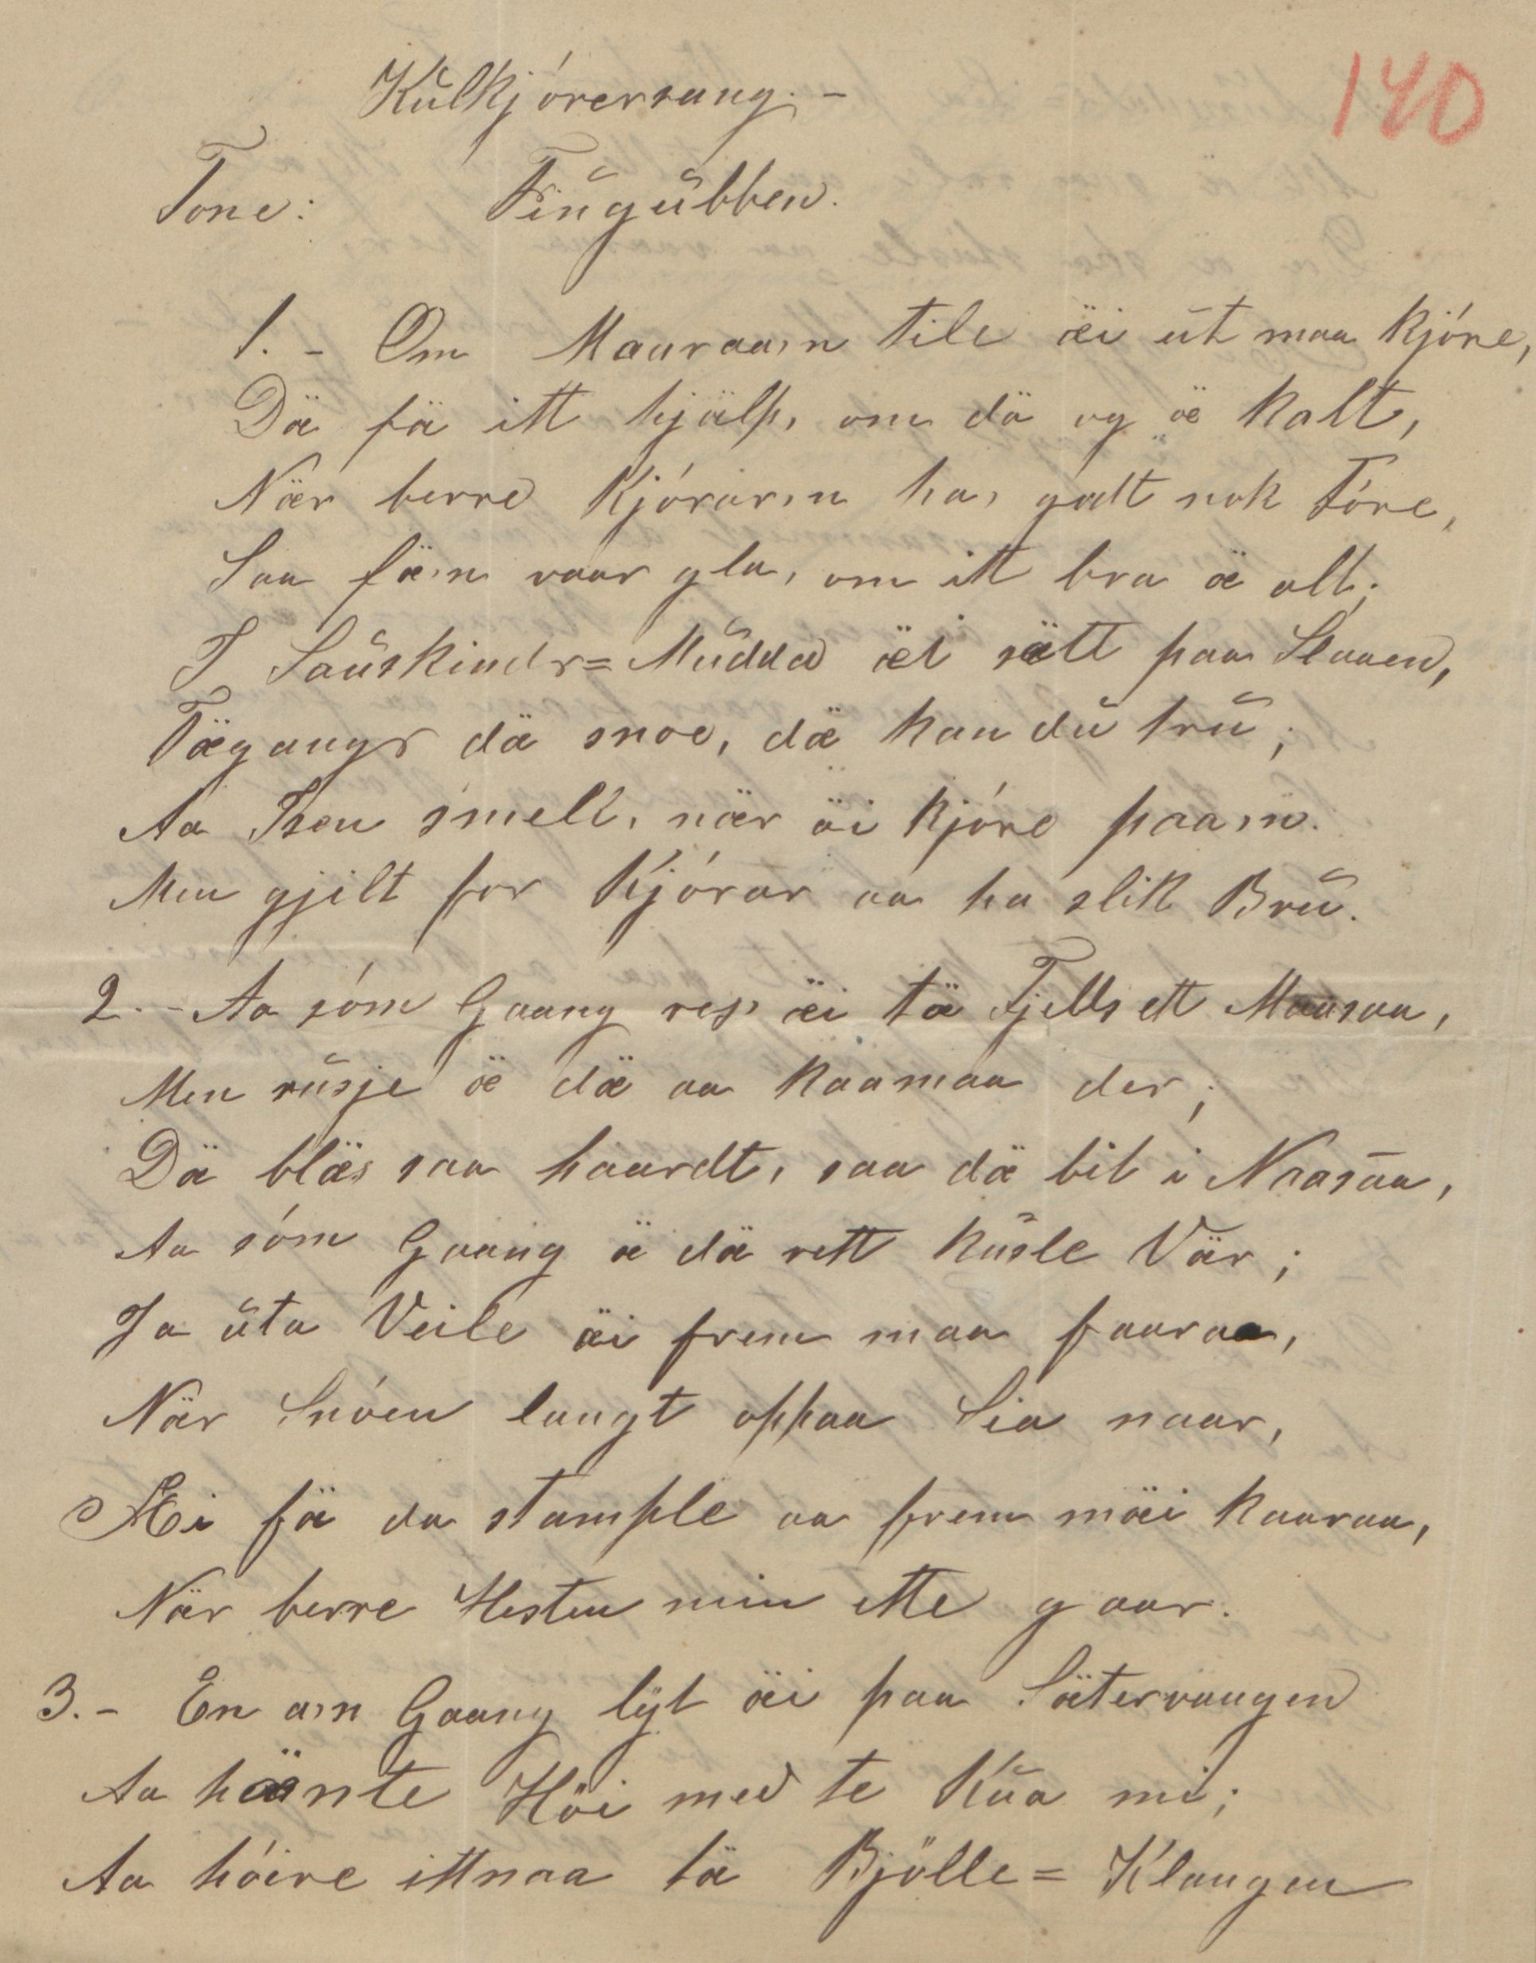 140
Kulkjórersang. –
Tone: Fingubben.
1. – Om Mauraa,n tile äi ut maa kjóre,
Dä fä itt hjälp, om dä og ä kalt,
När berre Kjórar,n ha, godt nok Fóre,
Saa fä,n vaar gla, om itt bra ä alt;
I Sauskinds=Mudda äi sätt paa Slaaen,
Tägangs dä snoe, dä kan du tru;
Aa Isen smell, när äi kjóre paa,n.
Men gjilt for Kjórar aa ha slik Bru.
2. – Aa sóm Gaang res, äi tä Fjells ett Maasaa,
Men rusje ä dä aa kaamaa der;
Dä bläs saa haardt, saa dä bit i Naasaa,
Aa sóm Gaang ä dä rett kusle Vär;
Ja uta Veile äi frem maa faaraa,
När Snóen langt oppaa Sia naar,
Æi fä da stample aa frem mäi kaaraa,
När berre Hesten min ette gaar.
3. – En a,n Gaang lyt äi paa Sätervangen
Aa hänte Höi med te Kua mi;
Aa hóire ittnaa tä Bjölle=Klangen